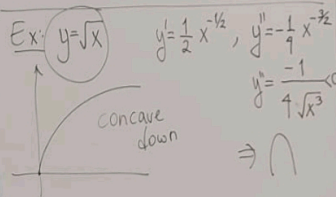 Ex: y=√x   y'=1/2 x^-1/2 , y''=-1/4 x^-3/2
y''=-1/(4√x³) <0
concave
down
⇒ ∩